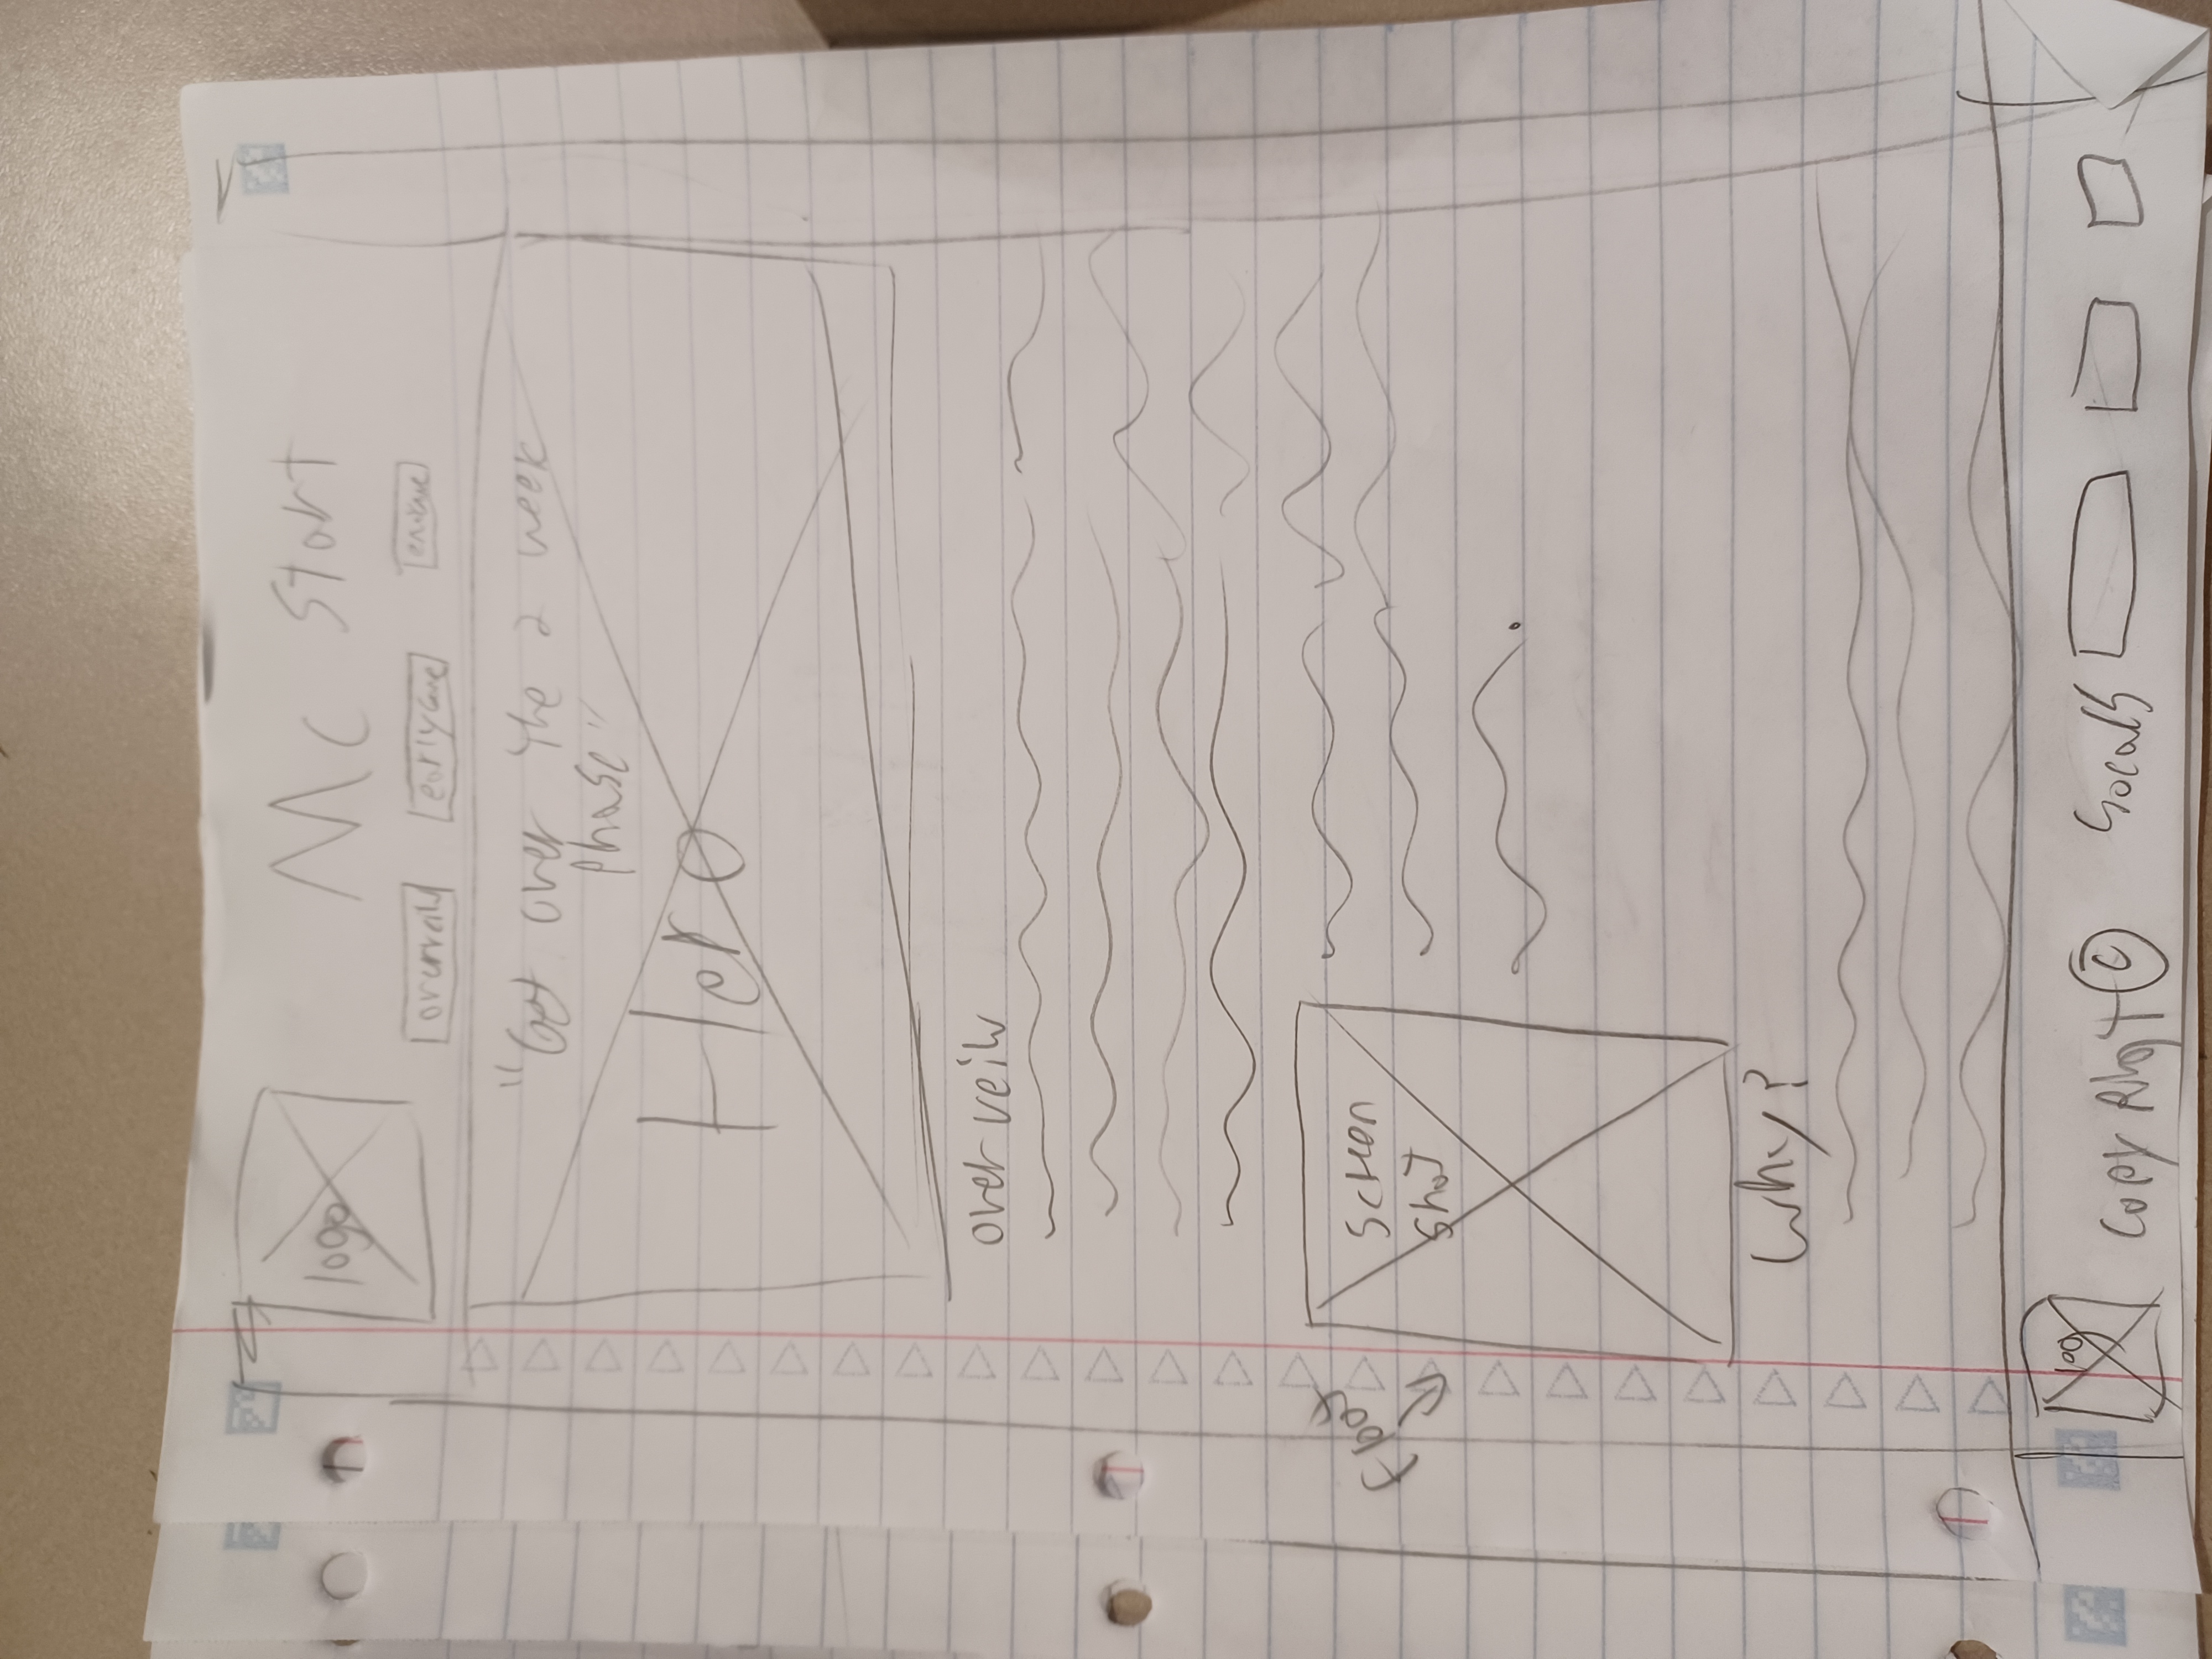 logo
Mc Start
overveiw
earlyGame
"Get over the 2 week
phase"
Hero
over veiw
Float
Screen
Shot
Why?
logo
Copy Right ©
Socals